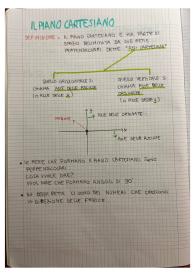 IL PIANO CARTESIANO
DEFINIZIONE: IL PIANO CARTESIANO È UNA PARTE DI
SPAZIO DELIMITATA DA DUE RETTE
PERPENDICOLARI DETTE "ASSI CARTESIANI"
QUELLO ORIZZONTALE SI
CHIAMA ASSE DELLE ASCISSE
(O ASSE DELLE X)
QUELLO VERTICALE SI
CHIAMA ASSE DELLE
ORDINATE
(O ASSE DELLE Y)
ASSE DELLE ORDINATE
ORIGINE
ASSE DELLE ASCISSE
LE RETTE CHE FORMANO IL PIANO CARTESIANO SONO
PERPENDICOLARI
COSA VUOLE DIRE?
VUOL DIRE CHE FORMANO ANGOLI DI 90°
SU OGNI RETTA CI SONO DEI NUMERI CHE CRESCONO
IN DIREZIONE DELLE FRECCE.